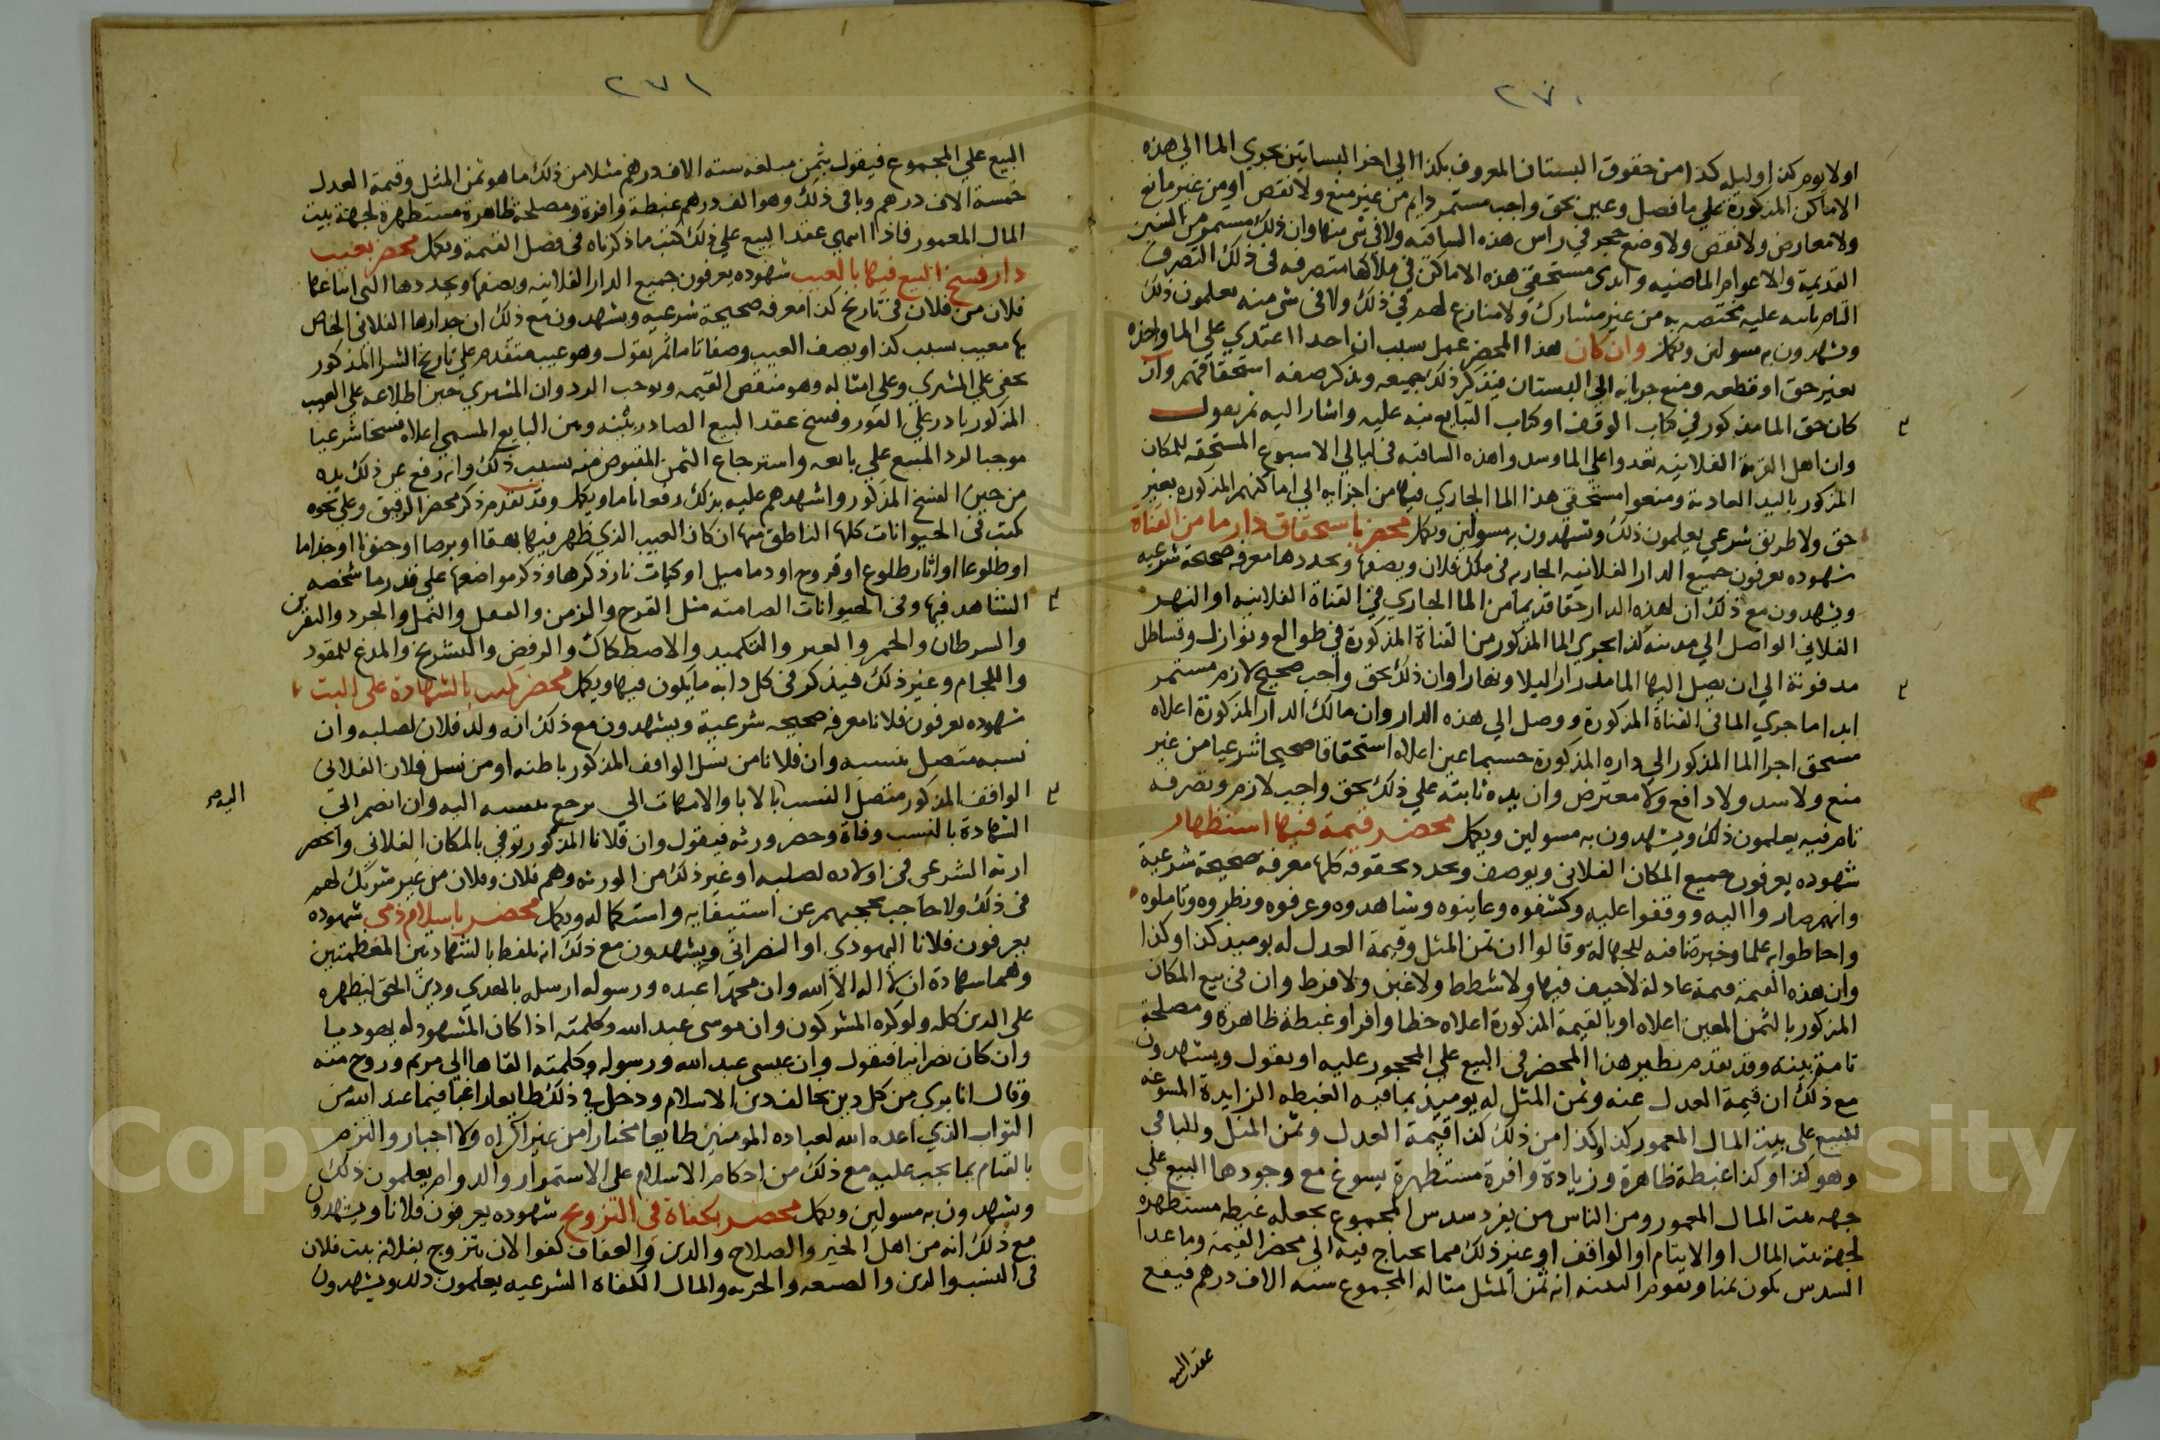 ٢٧٠
او لا يوم كذا او ليله كذا من حقوق البستان المعروف بكذا الي اخر البساتين يجري الما الي هذه
الاماكن المذكورة علي ما فصل وعين بحق واجب مستمر دايم من غير منع ولا نقص او من غير مانع
ولا معارض ولا نقص ولا وضع حجر في راس هذه الساقيه ولا في شي منها وان ذلك مستمر من السنين
القديمة والاعوام الماضيه وايدي مستحقي هذه الاماكن في ملاكها متصرفه في ذلك التصرف
التام ثابته عليه مختصه به من غير مشارك ولا منازع لهم في ذلك ولا في شي منه يعلمون ذلك
ويشهدون به مسولين ويكمل وان كان هذا المحضر عمل سبب ان احدا اعتدي علي الما واخذه
بغير حق او قطعه ومنع جريانه الي البستان فيذكر ذلك بجميعه ويذكر صفه استحقاقهم وان
كان حق الما مذكور في كتاب الوقف او كتاب التبايع نبه عليه واشار اليه ثم يقول
وان اهل القرية الفلانيه تعدوا علي الما وسدوا هذه الساقيه في ليالي الاسبوع المستحقه للمكان
المذكور باليد العادية ومنعوا مستحقي هذا الما الجاري فيها من اجرايه الي اماكنهم المذكوره بغير
حق ولا طريق شرعي يعلمون ذلك ويشهدون به مسولين ويكمل محضر باستحقاق دار ما من القناة
شهوده يعرفون جميع الدار الفلانيه الجاريه في ملك فلان ويصفها ويحددها معرفه صحيحة شرعيه
ويشهدون مع ذلك ان لهذه الدار حقا قديما من الما الجاري في القناة الفلانيه او النهر
الفلاني الواصل الي مدينه كذا يجري الما المذكور من القناة المذكورة في طوالع ونوازل وقساطل
مدفونة الي ان يصل اليها الما مدرارا ليلا ونهارا وان ذلك بحق واجب صحيح لازم مستمر
ابدا ما جري الما في القناة المذكورة ووصل الي هذه الدار وان مالك الدار المذكورة اعلاه
مستحق اجرا الما المذكور الي داره المذكورة حسبما عين اعلاه استحقاقا صحيحا شرعيا من غير
منع ولا سد ولا دافع ولا معترض وان يده ثابته علي ذلك بحق واجب لازم وتصرفه
تام فيه يعلمون ذلك ويشهدون به مسولين ويكمل محضر قيمة فيها استظهار
شهوده يعرفون جميع المكان الفلاني ويوصف ويحدد بحقوقه كلها معرفه صحيحة شرعية
وانهم صاروا اليه ووقفوا عليه وكشفوه وعاينوه وشاهدوه وعرفوه ونظروه وتاملوه
واحاطوا به علما وخبرة نافيه للجهالة وقالوا ان ثمن المثل وقيمة العدل له يوميذ كذا وكذا
وان هذه القيمة قيمة عادلة لا حيف فيها ولا شطط ولا غبن ولا فرط وان في بيع المكان
المذكور بالثمن المعين اعلاه او بالقيمة المذكورة اعلاه حظا وافرا وغبطة ظاهرة ومصلحة
تامة بينة وقد تقدم نظير هذا المحضر في البيع علي المحجور عليه او يقول ويشهدون
مع ذلك ان قيمة العدل عنه وثمن المثل له يوميذ بما فيه الغبطه الزايدة المسوغه
للبيع علي بيت المال المعمور كذا وكذا من ذلك كذا قيمة العدل وثمن المثل والباقي
وهو كذا وكذا غبطة ظاهرة وزيادة وافرة مستظهرة يسوغ مع وجودها البيع علي
جهه بيت المال المعمور ومن الناس من يفرد سدس المجموع يجعله غبطه مستظهره
لجهة بيت المال او الايتام او الواقف او غير ذلك مما يحتاج فيه الي محضر القيمة وما عدا
السدس يكون ثمنا وتقوم البينه انه ثمن المثل مثاله المجموع سته الاف درهم فيقع
عقد البيع
٢٧١
البيع علي المجموع فيقول بثمن مبلغه سته الاف درهم مثلا من ذلك ما هو ثمن المثل وقيمة العدل
خمسة الاف درهم وباقي ذلك وهو الف درهم غبطة وافرة ومصلحة ظاهرة مستظهرة لجهة بيت
المال المعمور فاذا انتهي عقد البيع علي ذلك كتب ما ذكرناه في فصل القيمة ويكمل محضر بعيب
دار فسخ البيع فيها بالعيب شهوده يعرفون جميع الدار الفلانيه ويصفها ويحددها التي ابتاعها
فلان من فلان في تاريخ كذا معرفه صحيحة شرعيه ويشهدون مع ذلك ان جدارها الفلاني الخاص
بها معيب سبب كذا ويصف العيب وصفا تاما ثم يقول وهو عيب متقدم علي تاريخ الشرا المذكور
يخفي علي المشتري وعلي امثاله وهو منقص القيمه ويوجب الرد وان المشتري حين اطلاعه علي العيب
المذكور بادر علي الفور وفسخ عقد البيع الصادر بينه وبين البايع المسمي اعلاه فسخا شرعيا
موجبا لرد المبيع علي بائعه واسترجاع الثمن المقبوض منه بسبب ذلك وانه رفع عن ذلك يده
من حين الفسخ المذكور واشهدهم عليه بذلك رفعا تاما ويكمل وقد تقدم ذكر محضر الرقيق وعلي نحوه
يكتب في الحيوانات كلها الناطق منها ان كان العيب الذي ظهر فيها بهقا او برصا او جنونا او جذاما
او طلوعا او اثار طلوع او قروح او دماميل او كيات نار ذكرها وذكر مواضعها علي قدر ما شخصه
الشاهد فيها وفي الحيوانات الصامته مثل القرح والزمن والعقل والنمل والجرد والنفرين
والسرطان والحمر والعبر والتكميد والاصطكاك والرفض والتشريخ والمدغ للمقود
واللجام وغير ذلك فيذكر في كل دابه ما يكون فيها ويكمل محضر نسب بالشهادة علي البت
شهوده يعرفون فلانا معرفه صحيحه شرعية ويشهدون مع ذلك انه ولد فلان لصلبه وان
نسبه متصل بنسبه وان فلانا من نسل الواقف المذكور باطنه او من نسل فلان الفلاني
الواقف المذكور متصل النسب بالابا والامهات الي يرجع بنسبه اليه وان انضم الي
اليه
الشهادة بالنسب وفاة وحصر ورثه فيقول وان فلانا المذكور توفي بالمكان الفلاني وانحصر
ارثه الشرعي في اولاده لصلبه او غير ذلك من الورثه وهم فلان وفلان من غير شريك لهم
في ذلك ولا حاجب يحجبهم عن استيفايه واستكماله ويكمل محضر باسلام ذمي شهوده
يعرفون فلانا اليهودي او النصراني ويشهدون مع ذلك انه تلفظ بالشهادتين المعظمتين
وهما شهادة ان لا اله الا الله وان محمدا عبده ورسوله ارسله بالهدي ودين الحق ليظهره
علي الدين كله ولو كره المشركون وان موسي عبد الله وكلمته اذا كان المشهود له يهوديا
وان كان نصرانيا فيقول وان عيسي عبد الله ورسوله وكلمته القاها الي مريم وروح منه
وقال انا بري من كل دين يخالف دين الاسلام ودخل في ذلك طايعا راغبا فيما عند الله من
الثواب الذي اعده الله لعباده المومنين طايعا مختارا من غير اكراه ولا اجبار والتزم
بالقيام بما يجب عليه مع ذلك من احكام الاسلام علي الاستمرار والدوام يعلمون ذلك
ويشهدون به مسولين ويكمل محضر بكفاة في التزويج شهوده يعرفون فلانا ويشهدون
مع ذلك انه من اهل الخير والصلاح والدين والعفاف كفوا لان يتزوج بفلانة بنت فلان
في النسب والدين والصنعه والحريه والمال الكفاة الشرعيه يعلمون ذلك ويشهدون